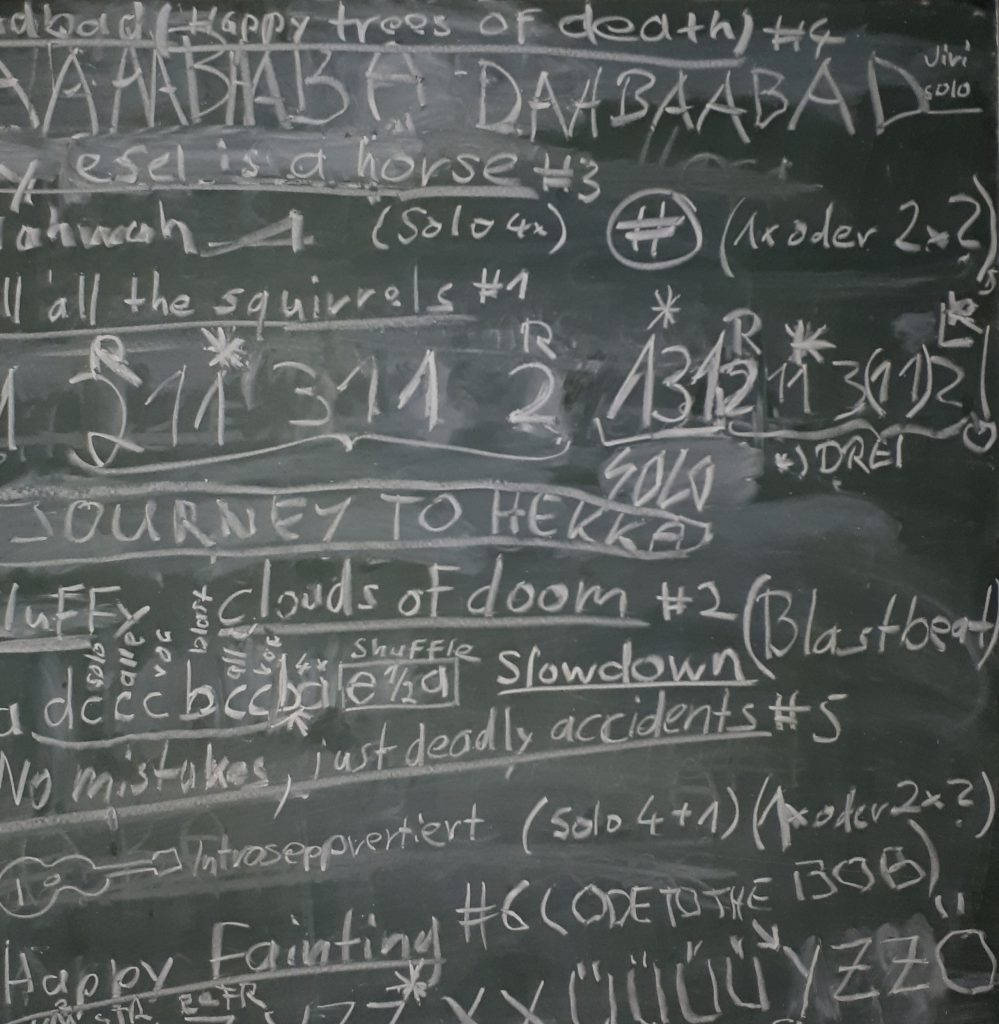 dbad (Happy trees of death) #4
AAAABAABA DAABAABAD Jivi solo
esel is a horse #3
(Solo 4x) # (1x oder 2x?)
ll all the squirrels #1
R * R * R *
1 211 311 2 1312 11 3(11)2
SOLO *) DREI
JOURNEY TO HEKKA
luffy clouds of doom #2 (Blastbeat)
solo alle voc blast alle voc 4x Shuffle
a dcccbccba e½a Slowdown
No mistakes, just deadly accidents #5
Introseppvertiert (Solo 4+1) (1x oder 2x?)
Happy Fainting #6 (ODE TO THE BOB)
XX ÜÜÜÜYZZÖ